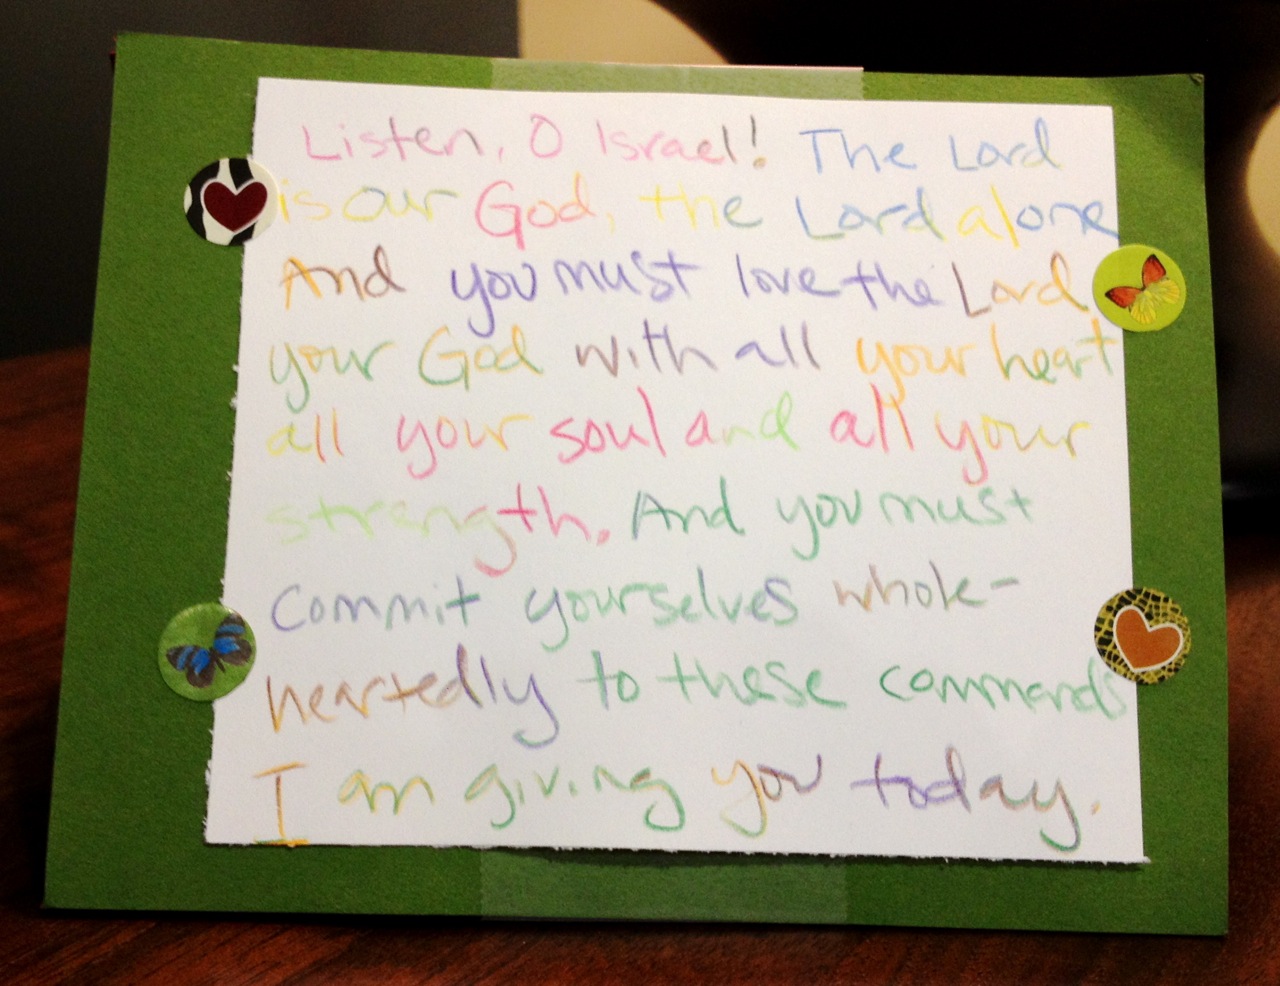 Listen, O Israel! The Lord
is our God, the Lord alone
And you must love the Lord
your God with all your heart
all your soul and all your
strength. And you must
commit yourselves whole-
heartedly to these commands
I am giving you today.